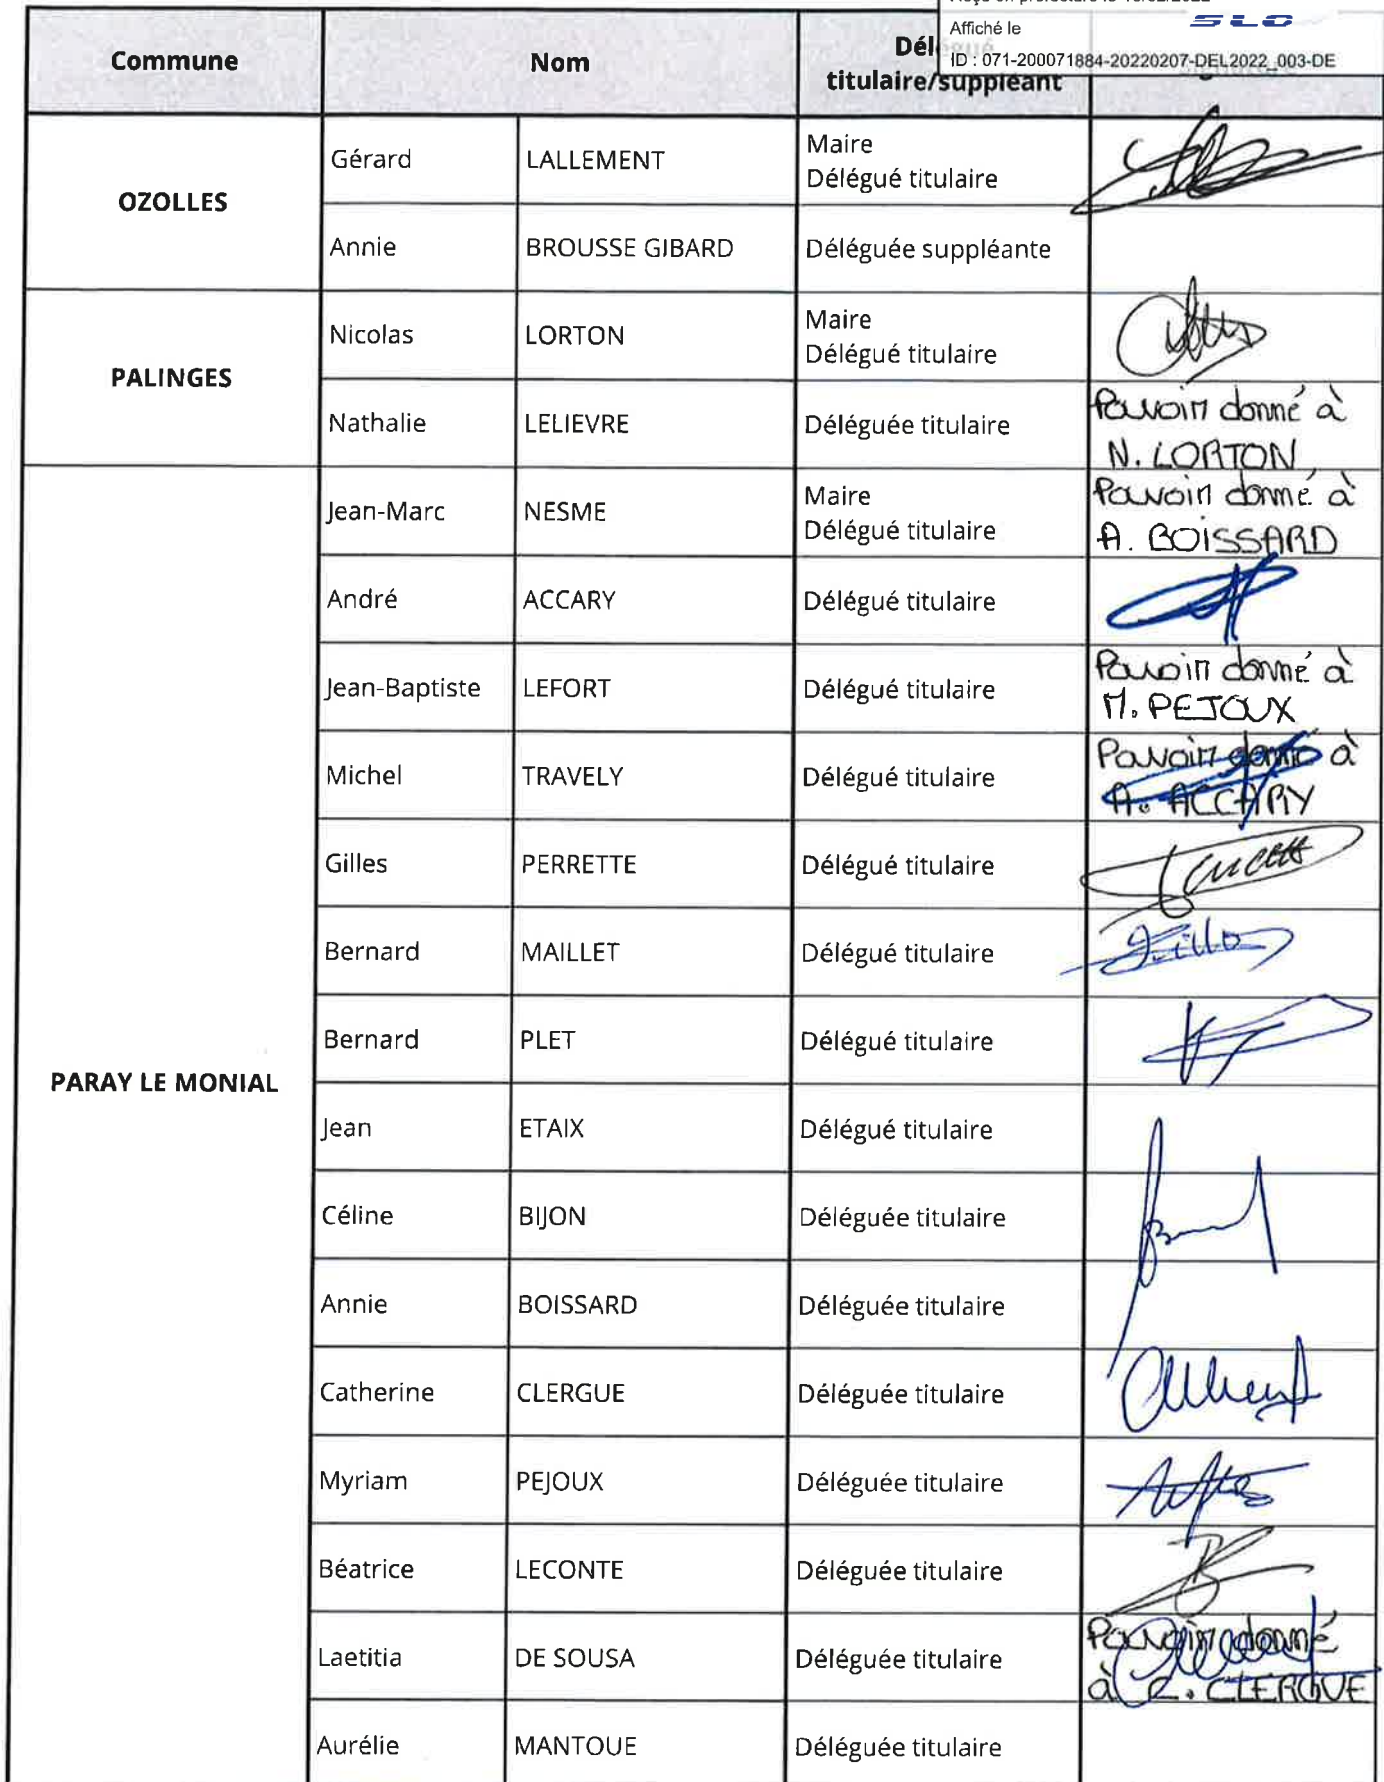 Affiché le
SLO
ID : 071-200071884-20220207-DEL2022_003-DE
Commune Nom titulaire/suppléant
OZOLLES
Gérard LALLEMENT Maire
Délégué titulaire
Annie BROUSSE GIBARD Déléguée suppléante
PALINGES
Nicolas LORTON Maire
Délégué titulaire
Nathalie LELIEVRE Déléguée titulaire Pouvoir donné à
N. LORTON
PARAY LE MONIAL
Jean-Marc NESME Maire
Délégué titulaire Pouvoir donné à
A. BOISSARD
André ACCARY Délégué titulaire
Jean-Baptiste LEFORT Délégué titulaire Pouvoir donné à
M. PEJOUX
Michel TRAVELY Délégué titulaire Pouvoir donné à
A. ACCARY
Gilles PERRETTE Délégué titulaire
Bernard MAILLET Délégué titulaire
Bernard PLET Délégué titulaire
Jean ETAIX Délégué titulaire
Céline BIJON Déléguée titulaire
Annie BOISSARD Déléguée titulaire
Catherine CLERGUE Déléguée titulaire
Myriam PEJOUX Déléguée titulaire
Béatrice LECONTE Déléguée titulaire
Laetitia DE SOUSA Déléguée titulaire Pouvoir donné
à C. CLERGUE
Aurélie MANTOUE Déléguée titulaire